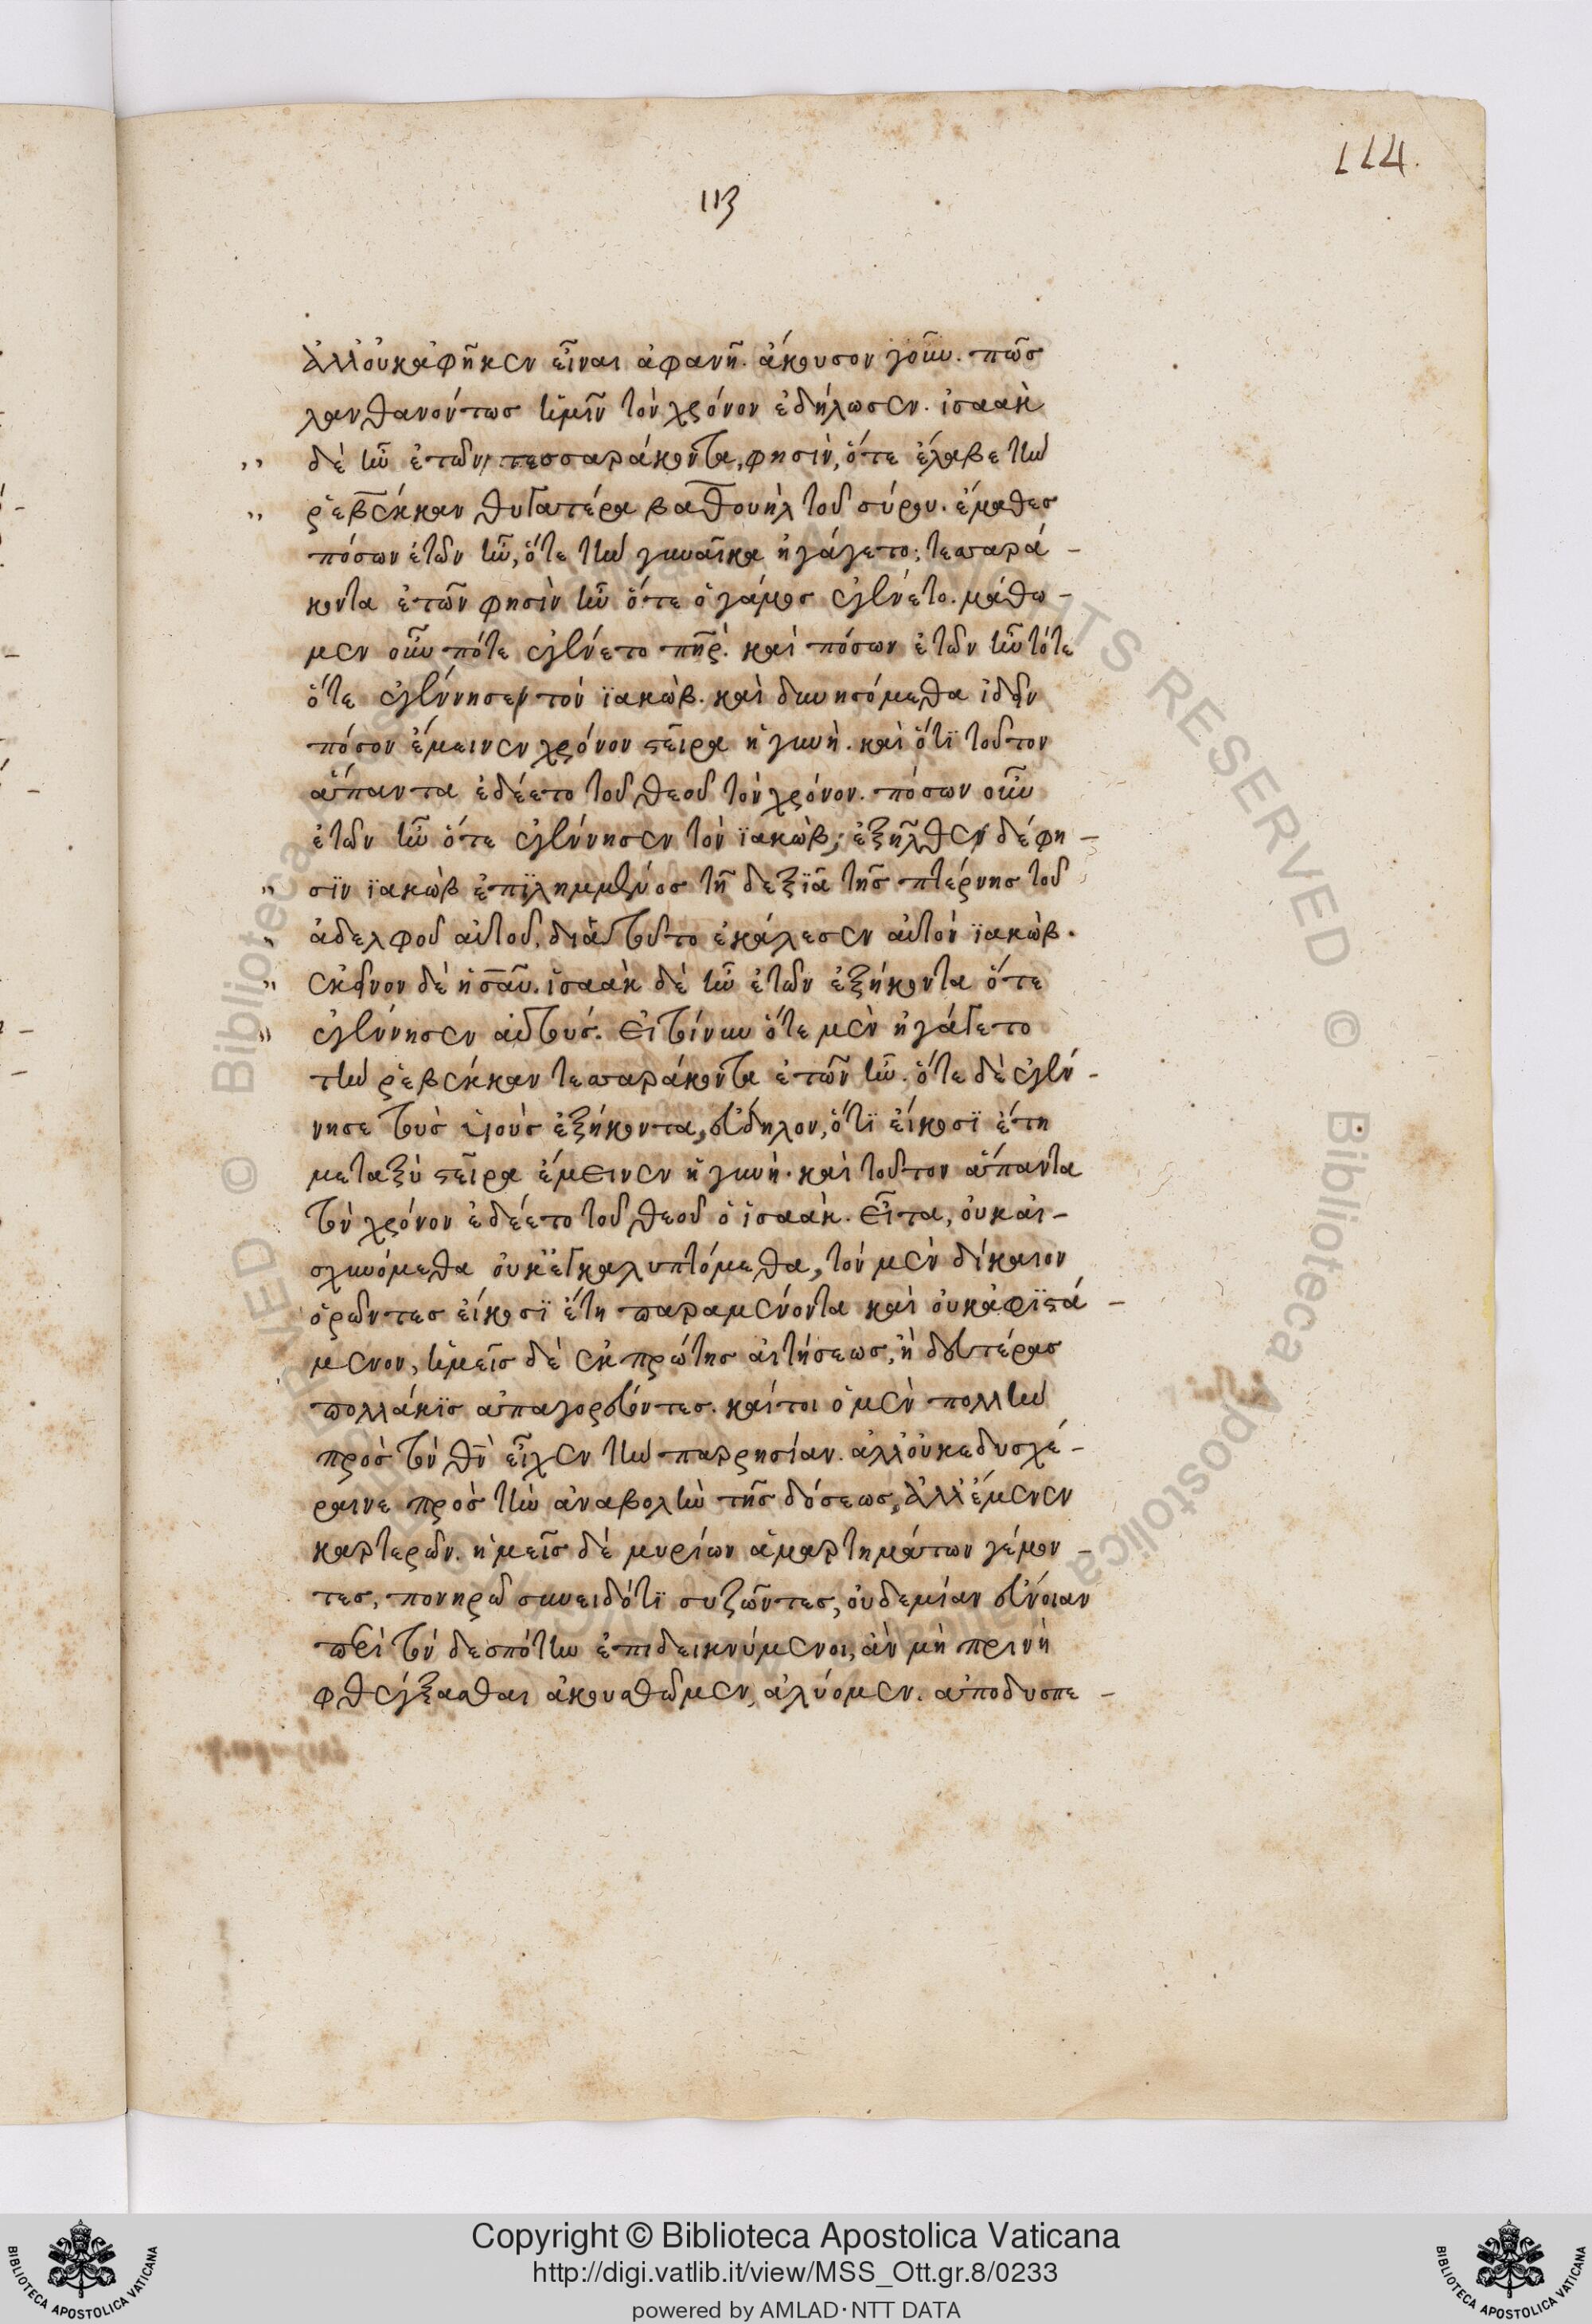 114.
113
ἀλλ' οὐκ ἀφῆκεν εἶναι ἀφανῆ. ἄκουσον γοῦν. πῶς
λανθανόντως ἡμῖν τὸν χρόνον ἐδήλωσεν. ἰσαὰκ
δὲ ἦν ἐτῶν τεσσαράκοντα, φησὶν, ὅτε ἔλαβε τὴν
ῥεβέκκαν θυγατέρα βαθουὴλ τοῦ σύρου. ἔμαθες
πόσων ἐτῶν ἦν, ὅτε τὴν γυναῖκα ἠγάγετο; τεσσαρά-
κοντα ἐτῶν φησὶν ἦν ὅτε ὁ γάμος ἐγένετο. μάθω-
μεν οὖν πότε ἐγένετο πηρ. καὶ πόσων ἐτῶν ἦν τότε
ὅτε ἐγέννησεν τὸν ϊακὼβ. καὶ δυνησόμεθα ἰδεῖν
πόσον ἔμεινεν χρόνον στεῖρα ἡ γυνὴ. καὶ ὅτϊ τοῦτον
ἅπαντα ἐδέετο τοῦ θεοῦ τὸν χρόνον. πόσων οὖν
ἐτῶν ἦν ὅτε ἐγέννησεν τὸν ϊακὼβ; ἐξῆλθεν δέ φη-
σϊν ϊακὼβ ἐπϊλημμένος τῇ δεξϊᾷ τῆς πτέρνης τοῦ
ἀδελφοῦ αὐτοῦ. διὰ τοῦτο ἐκάλεσεν αὐτὸν ϊακὼβ.
ἐκεῖνον δὲ ἡσαῦ. ἰσαὰκ δὲ ἦν ἐτῶν ἐξήκοντα ὅτε
ἐγέννησεν αὐτούς. εἰ τοίνυν ὅτε μὲν ἠγάγετο
τὴν ῥεβέκκαν τεσσαράκοντα ἐτῶν ἦν. ὅτε δὲ ἐγέν-
νησε τοὺς υἱοὺς ἐξήκοντα, εὔδηλον, ὅτϊ εἴκοσϊ ἔτη
μεταξὺ στεῖρα ἔμεινεν ἡ γυνή. καὶ τοῦτον ἅπαντα
τὸν χρόνον ἐδέετο τοῦ θεοῦ ὁ ἰσαὰκ. Εἶτα, οὐκ αἰ-
σχυνόμεθα οὐκ ἐγκαλυπτόμεθα, τὸν μὲν δίκαιον
ὁρῶντες εἴκοσϊ ἔτη παραμένοντα καὶ οὐκ ἀφϊστά-
μενον, ἡμεῖς δὲ ἐκ πρώτης αἰτήσεως, ἢ δευτέρας
πολλάκϊς ἀπαγορεύοντες. καίτοι ὁ μὲν πολλὴν
πρὸς τὸν θν εἶχεν τὴν παρρησίαν. ἀλλ' οὐκ εδυσχέ-
ραινε πρὸς τὴν ἀναβολὴν τῆς δόσεως, ἀλλ' ἔμενεν
καρτερῶν. ἡμεῖς δέ μυρίων ἁμαρτημάτων γέμον-
τες, πονηρῶ συνειδότϊ συζῶντες, οὐδεμίαν εὔνοιαν
περὶ τὸν δεσπότην ἐπιδεικνύμενοι, ἂν μὴ πρινὴ
φθέγξασθαι ἀκουσθῶμεν, ἀλύομεν. ἀποδυσπε-
Copyright © Biblioteca Apostolica Vaticana
http://digi.vatlib.it/view/MSS_Ott.gr.8/0233
powered by AMLAD·NTT DATA